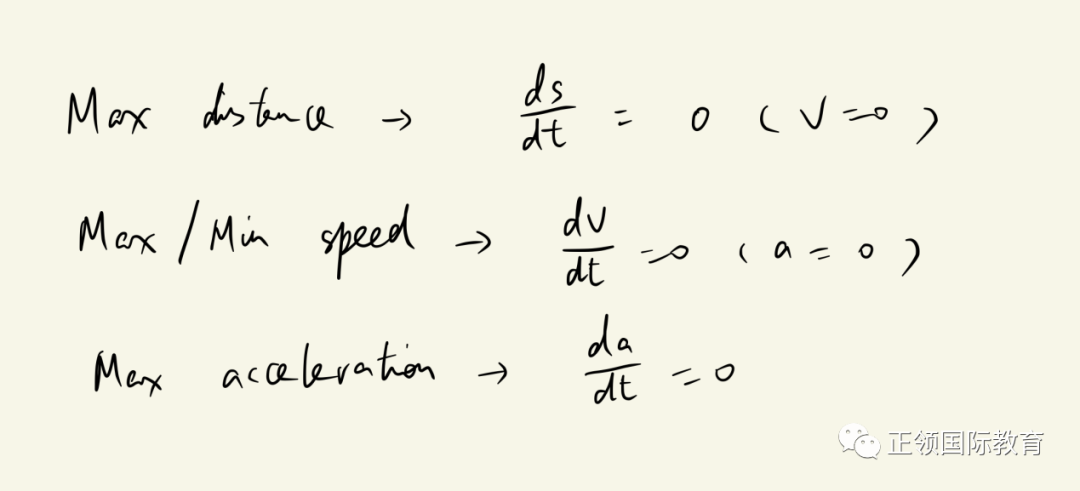 Max distance → ds/dt = 0 (V=0)
Max/Min speed → dv/dt =0 (a = 0)
Max acceleration → da/dt =0
正领国际教育